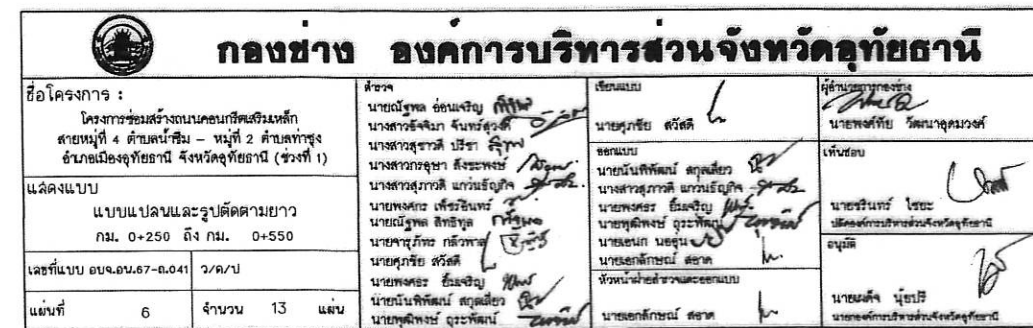 กองช่าง องค์การบริหารส่วนจังหวัดอุทัยธานี
ชื่อโครงการ :
โครงการซ่อมสร้างถนนคอนกรีตเสริมเหล็ก
สายหมู่ที่ 4 ตำบลน้ำซึม – หมู่ที่ 2 ตำบลท่าซุง
อำเภอเมืองอุทัยธานี จังหวัดอุทัยธานี (ช่วงที่ 1)
แสดงแบบ
แบบแปลนและรูปตัดตามยาว
กม. 0+250 ถึง กม. 0+550
เลขที่แบบ อบจ.อน.67-ถ.041 ว/ด/ป
แผ่นที่ 6 จำนวน 13 แผ่น
สำรวจ
นายณัฐพล อ่อนเจริญ
นางสาวอัจจิมา จันทร์สุวงศ์
นางสาวสุชาวดี ปรีชา
นางสาวกรอุษา
นางสาวสุภาวดี แกวนธัญกิจ
นายพงศกร เพ็ชรอินทร์
นายณัฐพล สิทธิกุล
นายจารุภัทร
นายศุภชัย สวัสดี
นายพงศธร ยิ้มเจริญ
นายนันพิพัฒน์ สกุลเสี่ยว
นายพุฒิพงษ์ ถุระพัฒน์
เขียนแบบ
นายศุภชัย สวัสดี
ออกแบบ
นายนันพิพัฒน์ สกุลเสี่ยว
นางสาวสุภาวดี แกวนธัญกิจ
นายพงศธร ยิ้มเจริญ
นายพุฒิพงษ์ ถุระพัฒน์
นายเอนก
นายเอกลักษณ์ สอาด
หัวหน้าฝ่ายสำรวจและออกแบบ
นายเอกลักษณ์ สอาด
ผู้อำนวยการกองช่าง
นายพงศ์ทัย วัฒนาอุดมวงศ์
เห็นชอบ
นายชรินทร์ ไชยะ
ปลัดองค์การบริหารส่วนจังหวัดอุทัยธานี
อนุมัติ
นายเผด็จ นุ้ยปรี
นายกองค์การบริหารส่วนจังหวัดอุทัยธานี